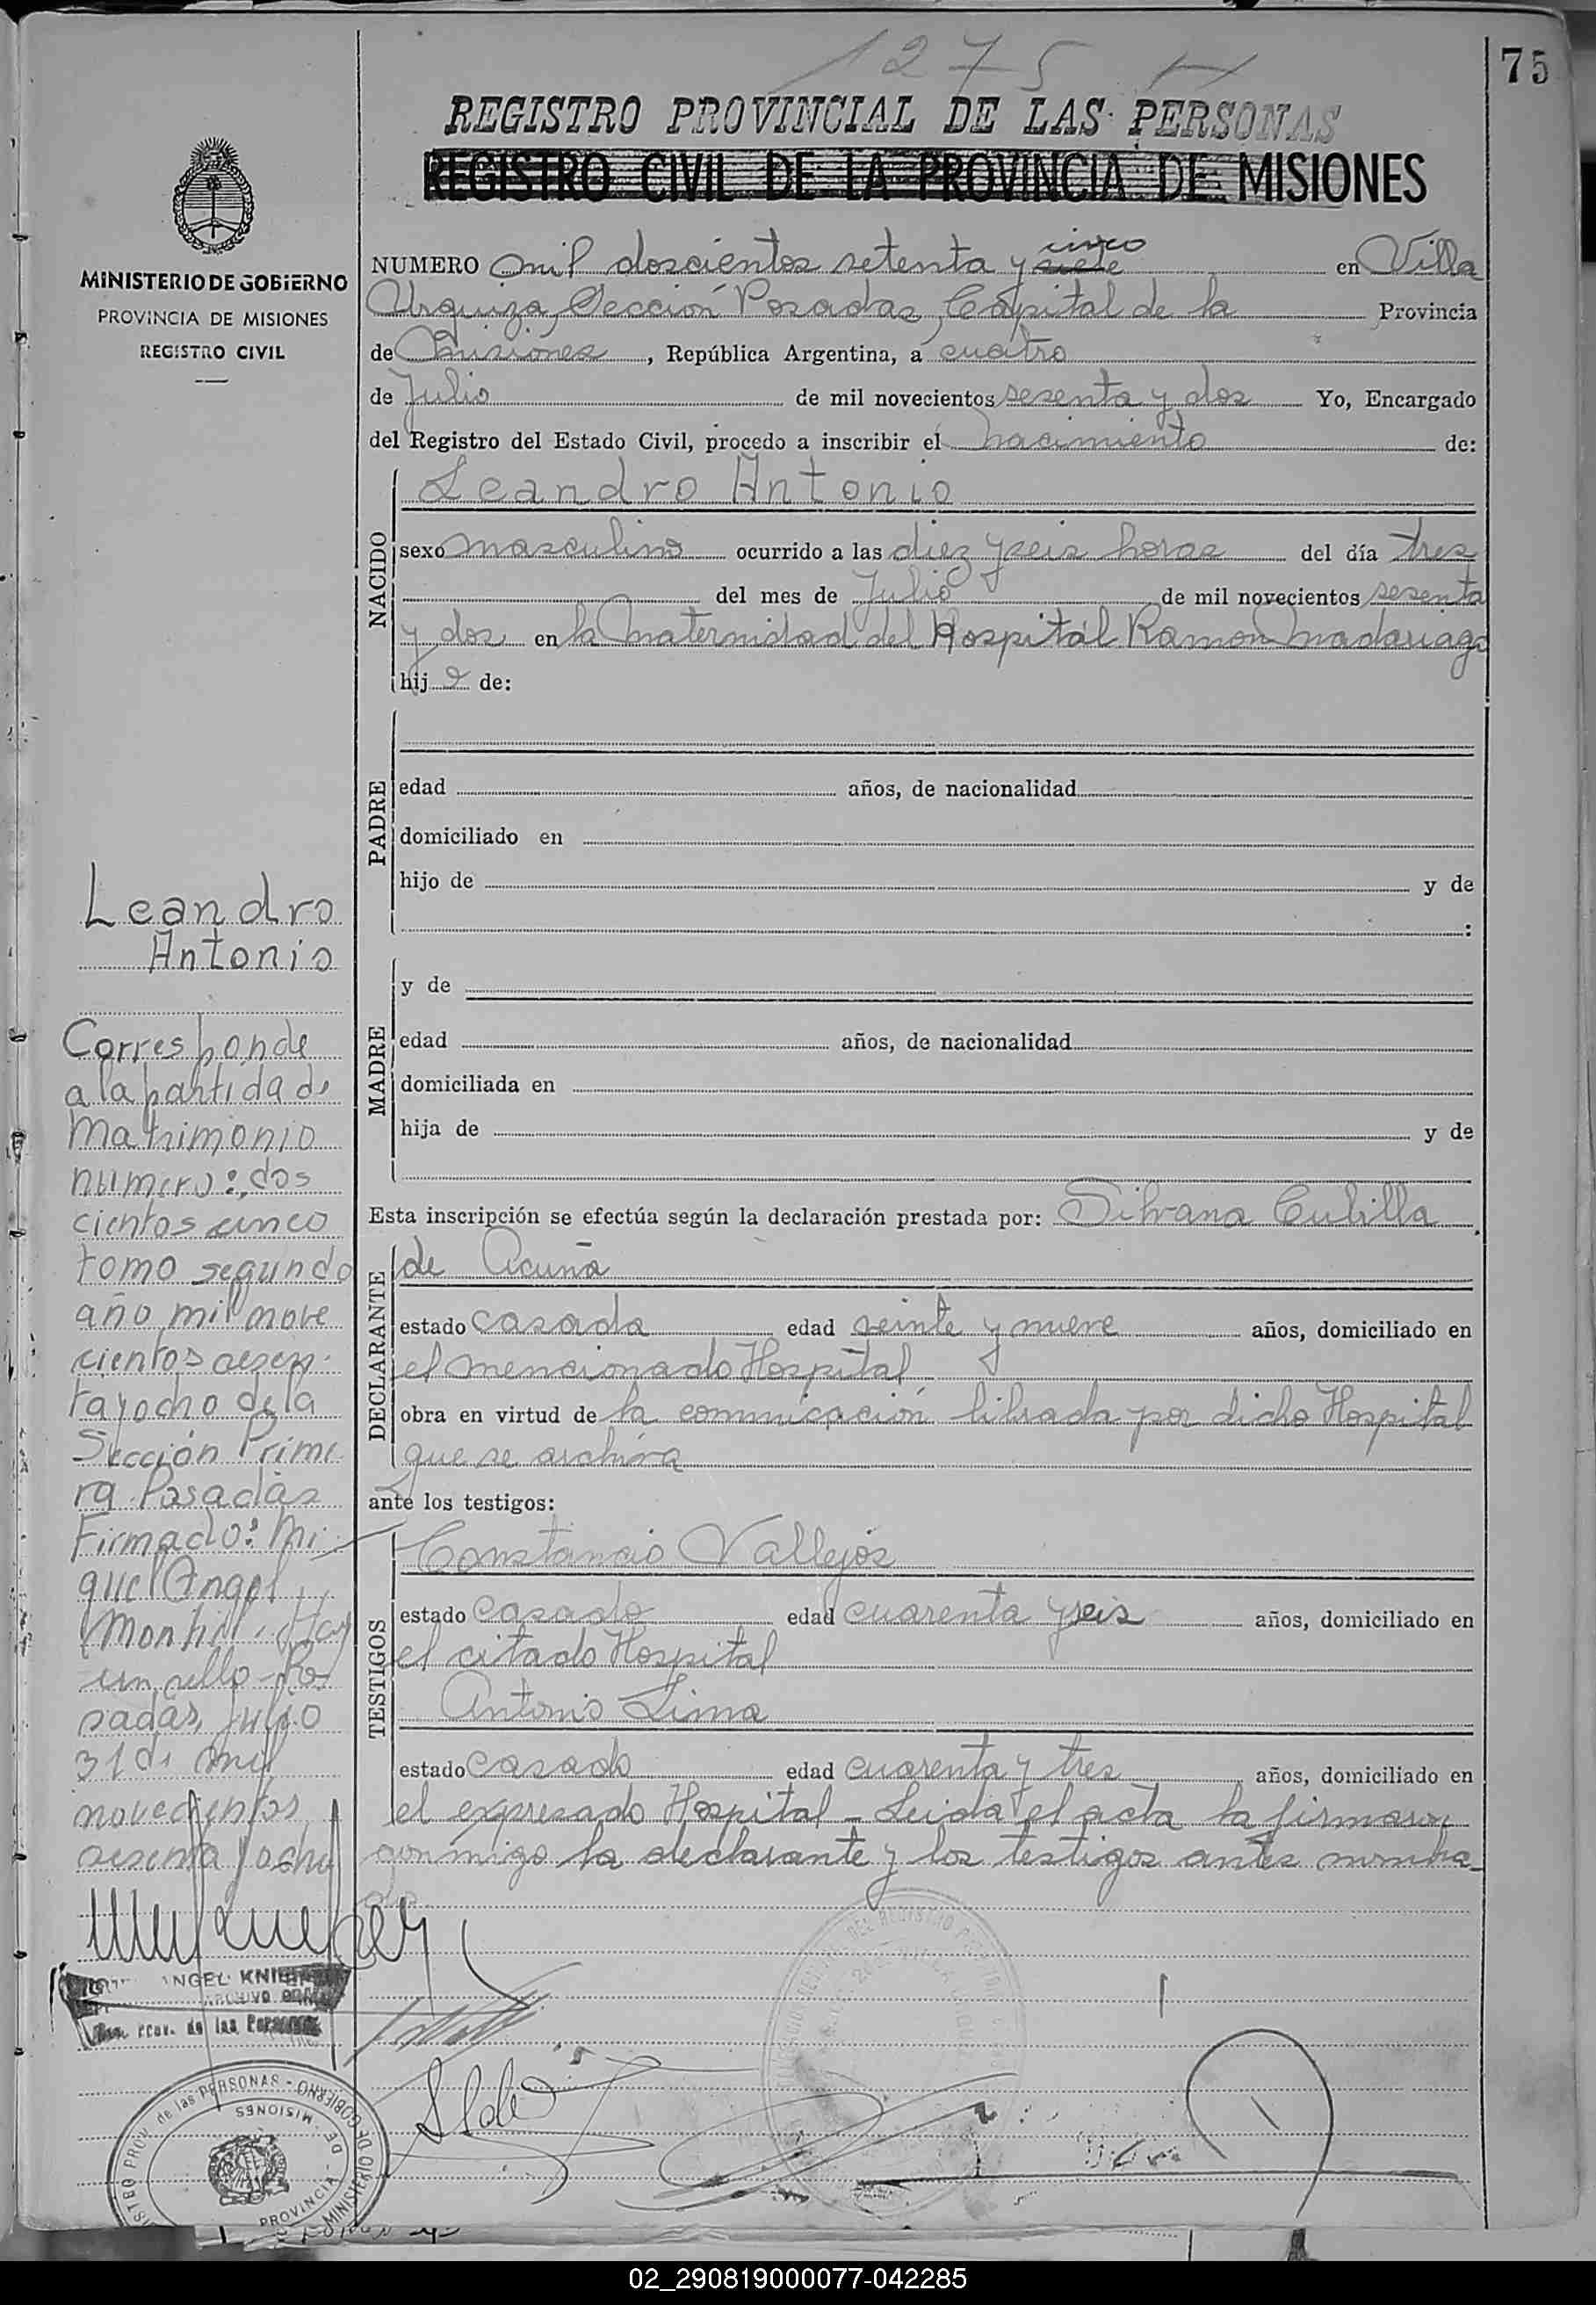 75
1275
REGISTRO PROVINCIAL DE LAS PERSONAS
REGISTRO CIVIL DE LA PROVINCIA DE MISIONES
MINISTERIO DE GOBIERNO
PROVINCIA DE MISIONES
REGISTRO CIVIL
NUMERO mil doscientos setenta y siete cinco en Villa
Urquiza, Sección Posadas, Capital de la Provincia
de Misiones, República Argentina, a cuatro
de Julio de mil novecientos sesenta y dos Yo, Encargado
del Registro del Estado Civil, procedo a inscribir el nacimiento de:
NACIDO
Leandro Antonio
sexo masculino ocurrido a las diez y seis horas del día tres
del mes de Julio de mil novecientos sesenta
y dos en la Maternidad del Hospital Ramon Madariaga
hijo de:
PADRE
edad años, de nacionalidad
domiciliado en
hijo de y de
:
MADRE
y de
edad años, de nacionalidad
domiciliada en
hija de y de
Esta inscripción se efectúa según la declaración prestada por: Silvana Cubilla
DECLARANTE
de Acuña
estado casada edad veinte y nueve años, domiciliado en
el mencionado Hospital
obra en virtud de la comunicación librada por dicho Hospital
que se archiva
ante los testigos:
TESTIGOS
Constancio Vallejos
estado casado edad cuarenta y seis años, domiciliado en
el citado Hospital
Antonio Lima
estado casado edad cuarenta y tres años, domiciliado en
el expresado Hospital - Leida el acta la firmaron
conmigo la declarante y los testigos antes nombra
Leandro
Antonio
Corresponde
a la partida de
Matrimonio
numero: dos
cientos cinco
tomo segundo
año mil nove
cientos sesen
ta y ocho de la
Sección Prime
ra Posadas
Firmado: Mi
guel Angel
Montiel. Hay
un sello - Po
sadas, Julio
31 de mil
novecientos
sesenta y ocho
ANGEL
Reg. Prov. de las Personas
REGISTRO PROV. de las PERSONAS - MINISTERIO DE GOBIERNO
PROVINCIA DE MISIONES
02_290819000077-042285